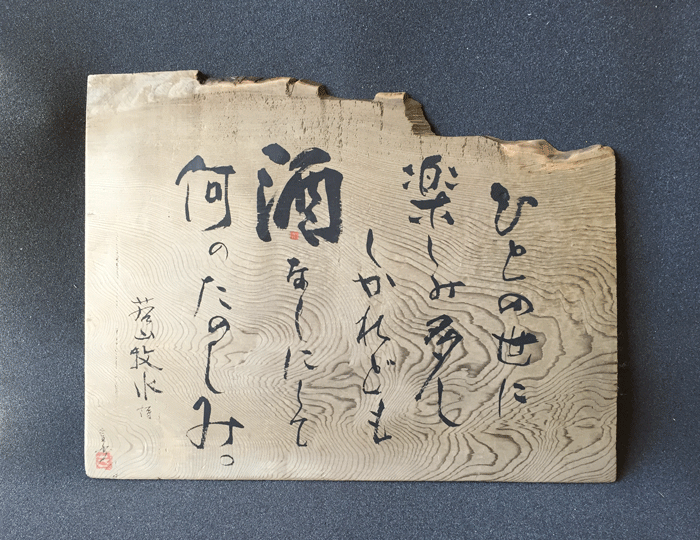 ひとの世に
楽しみ多し
しかれども
酒なしにして
何のたのしみ。
若山牧水